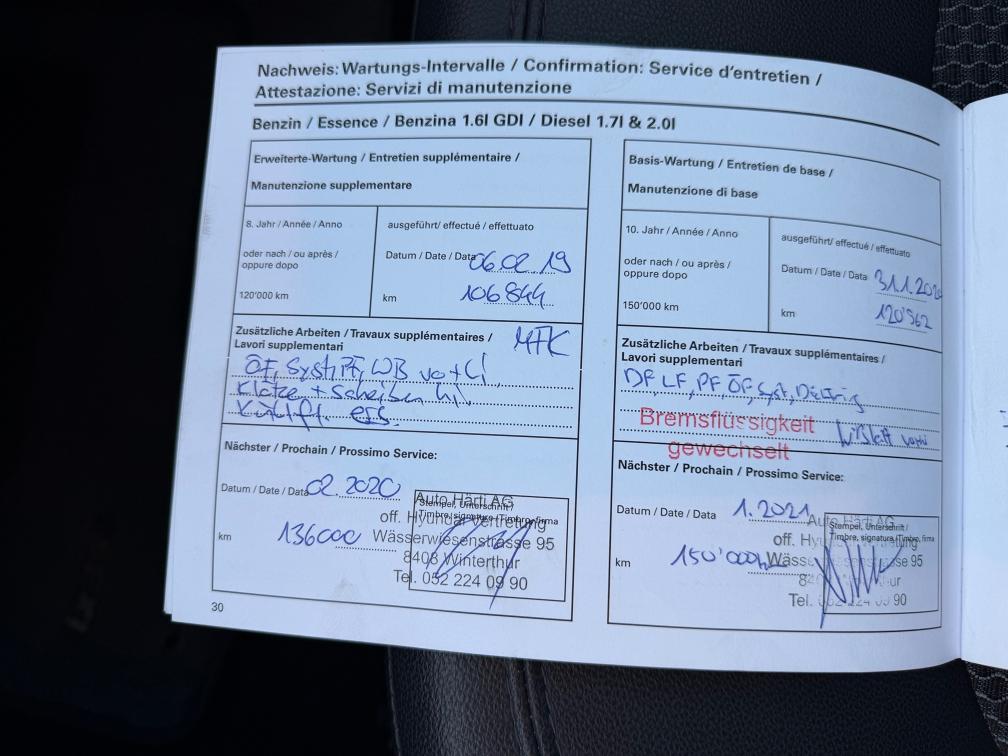 Nachweis: Wartungs-Intervalle / Confirmation: Service d'entretien /
Attestazione: Servizi di manutenzione
Benzin / Essence / Benzina 1.6l GDI / Diesel 1.7l & 2.0l
Erweiterte-Wartung / Entretien supplémentaire /
Manutenzione supplementare
8. Jahr / Année / Anno
oder nach / ou après /
oppure dopo
120'000 km
ausgeführt/ effectué / effettuato
Datum / Date / Data 06.02.19
km 106844
Zusätzliche Arbeiten / Travaux supplémentaires /
Lavori supplementari
MFK
ÖF, Syst, PF, WB
Klötze + Scheiben hi.
ers.
Nächster / Prochain / Prossimo Service:
Datum / Date / Data 02.2020
km 136000
Stempel, Unterschrift /
Timbre, signature /Timbro, firma
Auto Härti AG
off. Hyundai-Vertretung
Wässerwiesenstrasse 95
8408 Winterthur
Tel. 052 224 09 90
30
Basis-Wartung / Entretien de base /
Manutenzione di base
10. Jahr / Année / Anno
oder nach / ou après /
oppure dopo
150'000 km
ausgeführt/ effectué / effettuato
Datum / Date / Data 31.1.2020
km 120'562
Zusätzliche Arbeiten / Travaux supplémentaires /
Lavori supplementari
DF, LF, PF, ÖF, Syst,
Bremsflüssigkeit
gewechselt
Nächster / Prochain / Prossimo Service:
Datum / Date / Data 1.2021
km 150'000
Stempel, Unterschrift /
Timbre, signature /Timbro, firma
Auto Härti AG
off. Hy
Wäss 95
ur
Tel. 90